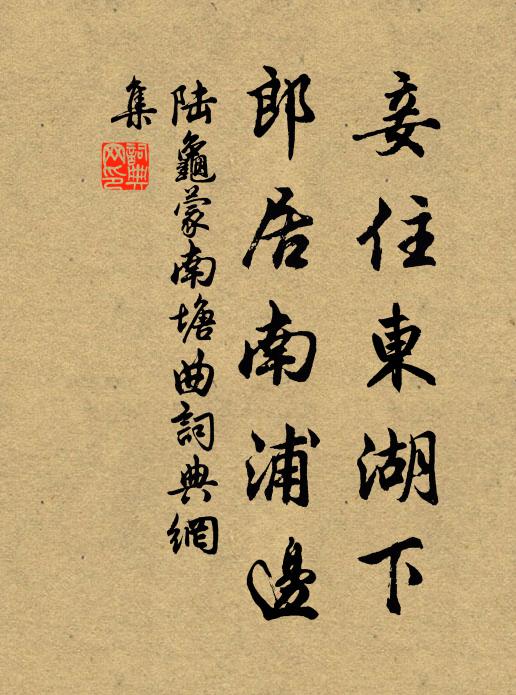 妾住東湖下
郎居南浦邊
陸龜蒙南塘曲詞典網
集
詞典網印